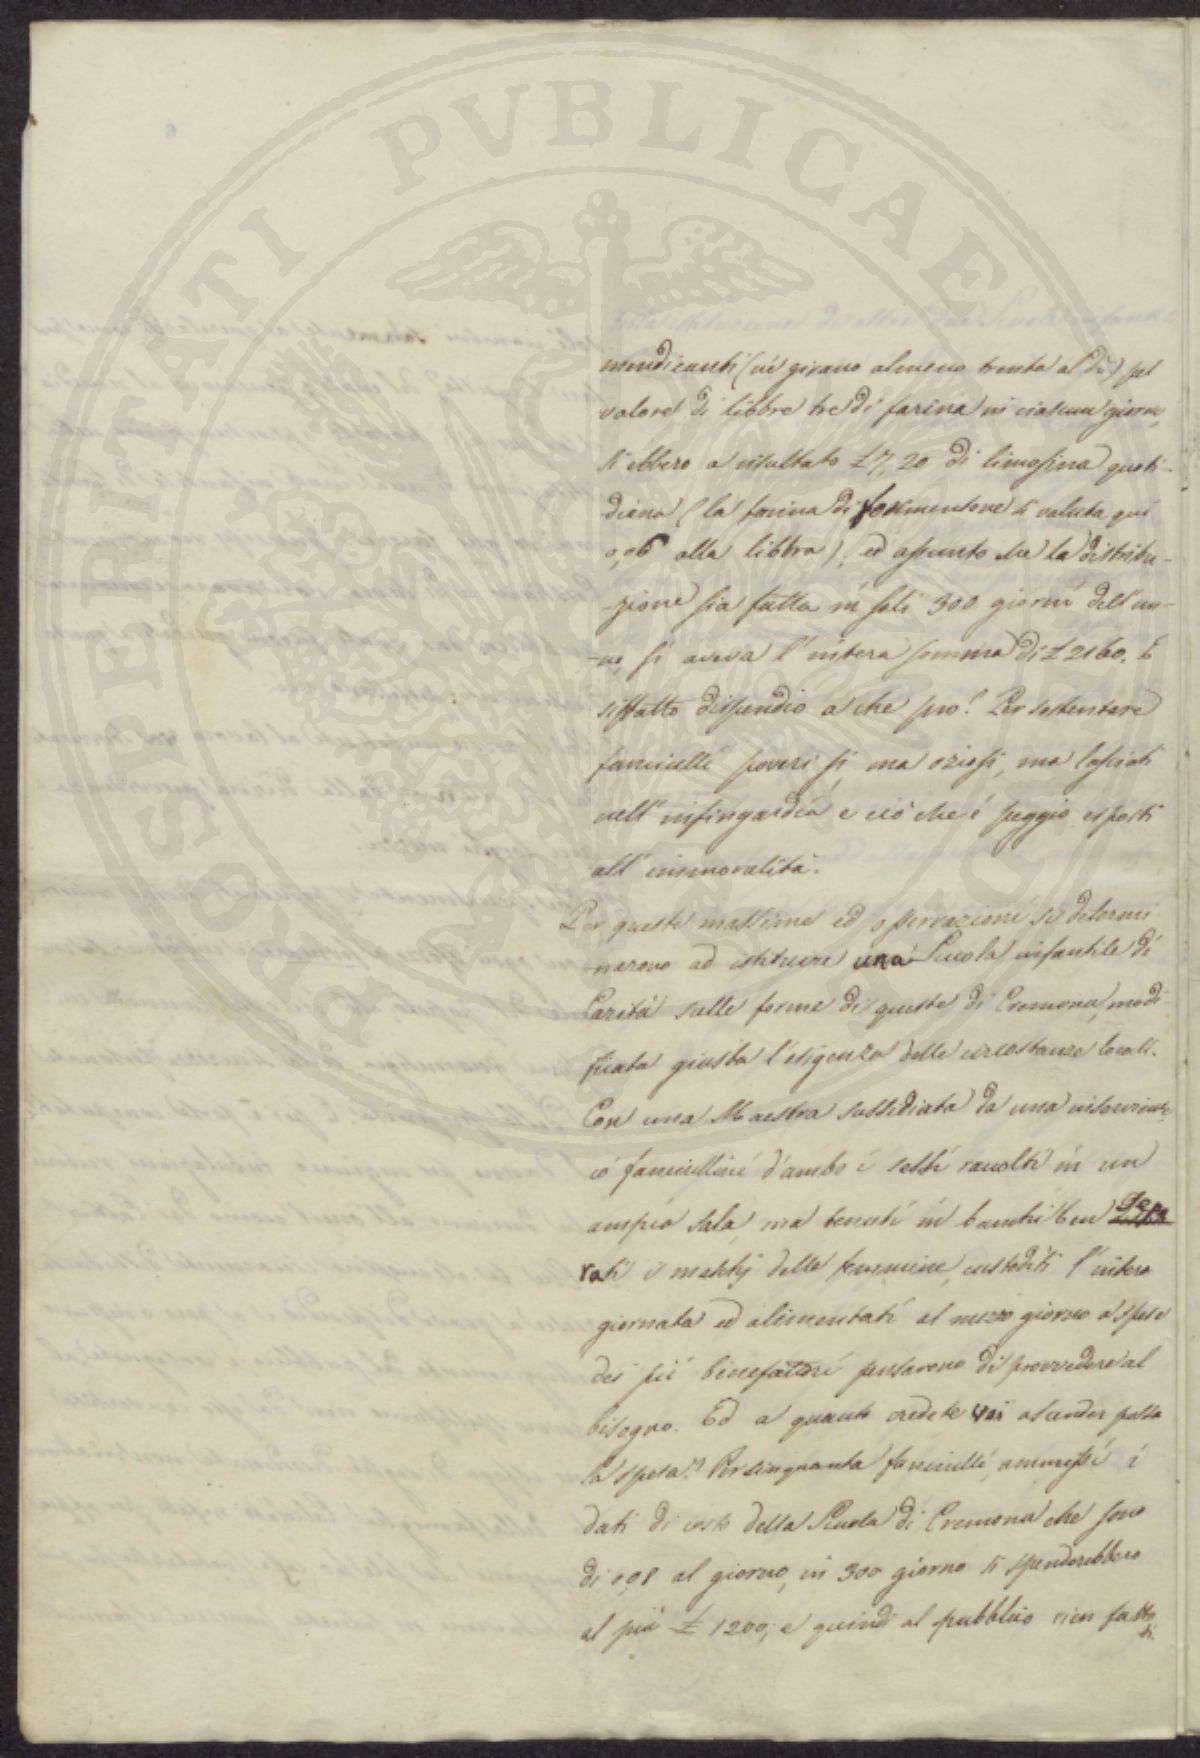 mendicanti (ne girano almeno trenta al dì) pel
valore di libbre tre di farina in ciascun giorno,
si ebbero a risultato £ 7,20 di limosina quoti-
diana (la farina di formentone si valuta qui
0,06 alla libbra), ed assunto che la distribu-
-zione sia fatta in soli 300 giorni dell'an-
-no, si aveva l'intera somma di £ 2160. E
siffatto dispendio a che pro? Per sostentare
fanciulli poveri sì, ma oziosi, ma lasciati
nell'infingardia e ciò che è peggio esposti
all'immoralità.
Per queste massime ed osservazioni si determi
narono ad istituire una Scuola infantile di
Carità sulle forme di queste di Cremona, modi-
ficata giusta l'esigenza delle circostanze locali.
Con una Maestra sussidiata da una inserviente,
i fanciullini d'ambo i sessi raccolti in un
ampia sala, ma tenuti in banchi ben sepa
rati i maschj delle femmine, custoditi l'intera
giornata ed alimentati al mezzo giorno a spese
dei pii benefattori pensarono di provvedere al
bisogno. Ed a quanto credete voi ascender possa
la spesa? Per cinquanta fanciulli, ammessi i
dati di costo della Scuola di Cremona che sono
di 0,08 al giorno, in 300 giorno si spenderebbero
al più £ 1200; e quindi al pubblico vien fatto
di
PUBLICAE
SOSPITATI